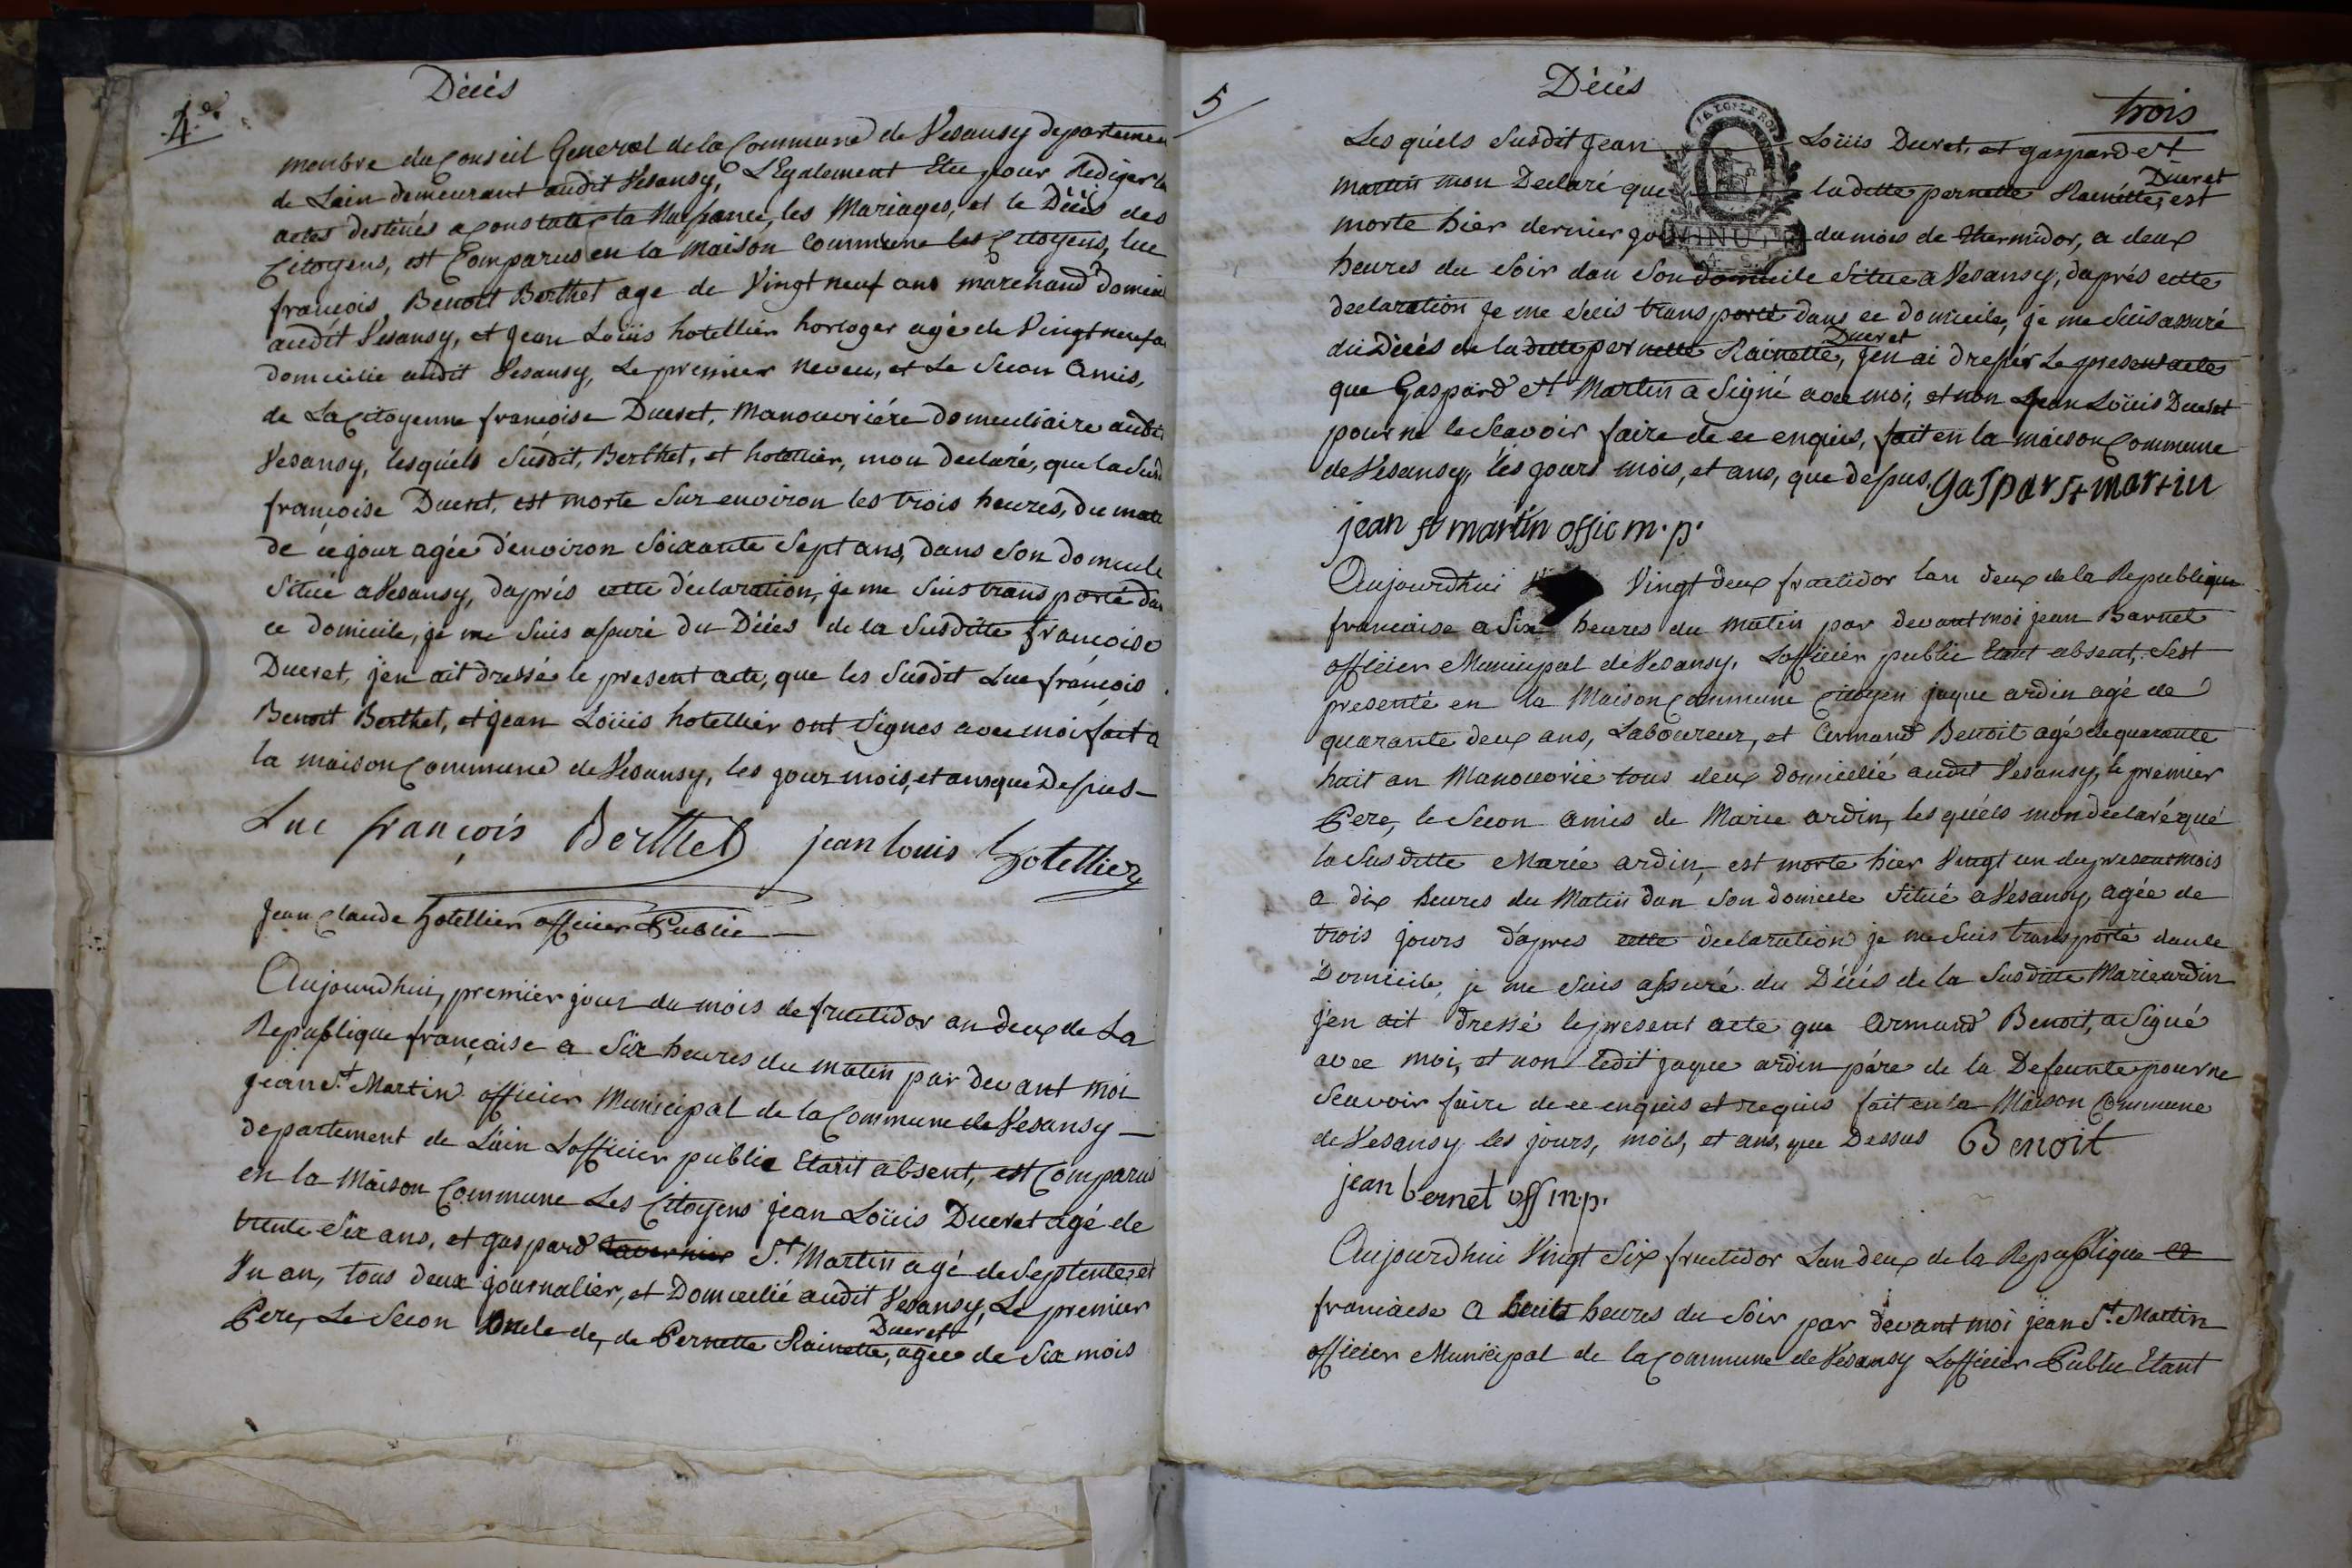 4e.
Décés
membre du Conseil General de la Commune de Vesansy departemen
de Lain demeurant audit Vesansy, Légalement Elu pour Rediger les
actes destinés a constater la Naissance, les Mariages, et le Décés des
Citoyens, est Comparus en la Maison Commune les Citoyens, luc
françois Benoit Berthet age de Vingt neuf ans marchand domici
audit Vesansy, et Jean Loüis hotellier horloger agé de Vingt neuf a
domicilié audit Vesansy, Le premier neveu, et Le Secon Amis,
de La Citoyenne françoise Ducret, Manouvriére domiciliaire audit
Vesansy, lesquels Susdit, Berthet, et hotellier, mon declaré, que la Susd
françoise Ducret, est morte Sur environ les trois heures, du mati
de ce jour agée d'environ Soixante Sept ans, dans Son domicile
Situé a Vesansy, daprés cette déclaration, je me Suis transporté dan
ce domicile, je me Suis assuré du Décés de la Susditte françoise
Ducret, j'en ait dressé le present acte, que les Susdit Luc françois
Benoit Berthet, et Jean Loüis hotellier ont Signes avec moi fait a
la maison Commune de Vesansy, les jour mois, et ans que Dessus —
Luc françois Berthet jean louis hotellier
Jean Claude hotellier officier Public —
Aujourdhui, premier jour du mois de fructidor an deux de La
Republique française a Six heures du matin par devant moi
Jean St. Martin officier Municipal de la Commune de Vesansy —
departement de Lain Lofficier public Etant absent, est Comparus
en la Maison Commune Les Citoyens Jean Loüis Ducret agé de
trente Six ans, et gaspard St. Martin agé de Septente et
Un an, tous deux journalier, et Domicilié audit Vesansy, Le premier
Ducret
Pere, Le Secon Oncle de, de Pernette Rainette, agée de Six mois
5
Décés
trois
Les quels Susdit Jean Loüis Ducret, et gaspard St
Ducret
martin mon Declaré que la ditte pernette Rainette, est
morte hier dernier jo MINUTE du mois de thermidor, a deux
heures du Soir dan Son domicile Situé a Vesansy, daprés cette
declaration je me Suis transporté dans ce domicile, je me Suis assuré
Ducret
du Décés de la ditte pernette Rainette, jen ai dressér Le present acte
que Gaspard St Martin a Signé avec moi, et non Jean Loüis Ducret
pour ne le Scavoir faire de ce enquis, fait en la maison Commune
de Vesansy, les jours mois, et ans, que dessus, gaspar st martin
jean st martin offic m. p.
Aujourdhui Vingt deux fructidor lan deux de la Republique
francaise a Six heures du Matin par devant moi jean Barnet
officier Municipal de Vesansy, Lofficier public Etant absent, Sest
presenté en la Maison Commune Citoyen jaque ardin agé de
quarante deux ans, Laboureur, et Armand Benoit agé de quarante
huit an Manouvrié tous deux domicilié audit Vesansy, le premier
Pere, le Secon amis de Marie ardin, les quéls mon declaré que
la Susditte Marie ardin, est morte hier Vingt un du present mois
a dix heures du Matin dan Son domicile Situé a Vésansy, agée de
trois jours d'apres cette declaration je me Suis transporté dan le
Domicile, je me Suis assuré du Décés de la Susditte Marie ardin
j'en ait dressé le present acte que Armand Benoit, a Signé
avec moi, et non ledit jaque ardin pére de la Defeunte pour ne
Scavoir faire de ce enquis et requis fait en la Maison Commune
de Vesansy les jours, mois, et ans, que Dessus Benoit
jean bernet off m.p.
Aujourdhui Vingt Six fructidor Lan deux de la Republique
franciaese a huit heures du Soir par devant moi jean St. Martin
officier Municipal de la Commune de Vésansy Lofficier Public Etant